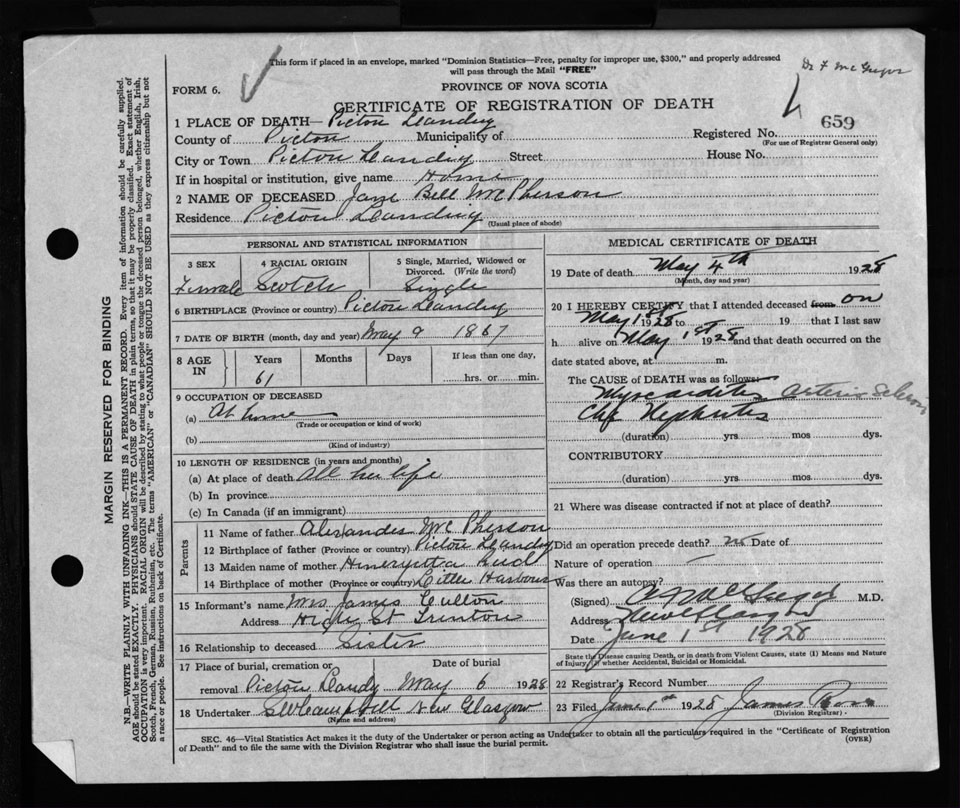 This form if placed in an envelope, marked "Dominion Statistics—Free, penalty for improper use, $300," and properly addressed
will pass through the Mail "FREE"
Dr F McGregor
FORM 6.
PROVINCE OF NOVA SCOTIA
CERTIFICATE OF REGISTRATION OF DEATH
1 PLACE OF DEATH— Picton Landing
County of Picton Municipality of Registered No. 659
(For use of Registrar General only)
City or Town Picton Landing Street House No.
If in hospital or institution, give name Home
2 NAME OF DECEASED Jane Bell McPherson
Residence Picton Landing
(Usual place of abode)
PERSONAL AND STATISTICAL INFORMATION
3 SEX 4 RACIAL ORIGIN 5 Single, Married, Widowed or
Divorced. (Write the word)
Female Scotch Single
6 BIRTHPLACE (Province or country) Picton Landing
7 DATE OF BIRTH (month, day and year) May 9 1867
8 AGE IN Years Months Days If less than one day,
61 hrs. or min.
9 OCCUPATION OF DECEASED
(a) At home
(Trade or occupation or kind of work)
(b)
(Kind of industry)
10 LENGTH OF RESIDENCE (in years and months)
(a) At place of death All her life
(b) In province
(c) In Canada (if an immigrant)
Parents
11 Name of father Alexander McPherson
12 Birthplace of father (Province or country) Picton Landing
13 Maiden name of mother
14 Birthplace of mother (Province or country) Little Harbour
15 Informant's name Mrs James Cullon
Address High St Trenton
16 Relationship to deceased Sister
17 Place of burial, cremation or Date of burial
removal Picton Landy May 6 1928
18 Undertaker Campbell New Glasgow
(Name and address)
MEDICAL CERTIFICATE OF DEATH
19 Date of death May 4th 1928
(Month, day and year)
20 I HEREBY CERTIFY that I attended deceased from on
May 1st 1928 to 19 that I last saw
h alive on May 1st 1928 and that death occurred on the
date stated above, at m.
The CAUSE of DEATH was as follows:
Myocarditis Arterio Sclerosis
Nephritis
(duration) yrs. mos dys.
CONTRIBUTORY
(duration) yrs. mos dys.
21 Where was disease contracted if not at place of death?
Did an operation precede death? no Date of
Nature of operation
Was there an autopsy?
(Signed) McGregor M.D.
Address New Glasgow
Date June 1st 1928
State the Disease causing Death, or in death from Violent Causes, state (I) Means and Nature
of Injury, (I) whether Accidental, Suicidal or Homicidal.
22 Registrar's Record Number
23 Filed June 1st 1928 James Ross
(Division Registrar)
SEC. 46—Vital Statistics Act makes it the duty of the Undertaker or person acting as Undertaker to obtain all the particulars required in the "Certificate of Registration
of Death" and to file the same with the Division Registrar who shall issue the burial permit.
(OVER)
MARGIN RESERVED FOR BINDING
N.B.—WRITE PLAINLY WITH UNFADING INK—THIS IS A PERMANENT RECORD. Every item of information should be carefully supplied.
AGE should be stated EXACTLY. PHYSICIANS should STATE CAUSE OF DEATH in plain terms, so that it may be properly classified. Exact statement of
OCCUPATION is very important. RACIAL ORIGIN will be described by stating to what people or tongue the deceased person belonged, whether English, Irish,
Scotch, French, German, Russian, Ruthenian, etc. The terms "AMERICAN" or "CANADIAN" SHOULD NOT BE USED as they express citizenship but not
a race or people. See instructions on back of Certificate.